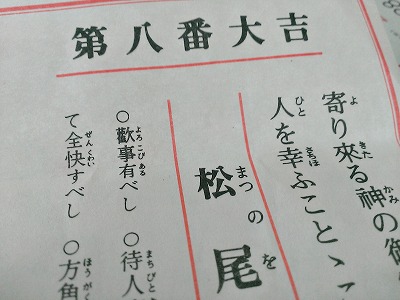 第八番大吉
寄り來る神の御
人を幸ふことゝ
松の尾
○歡事有べし ○待人
て全快すべし ○方角